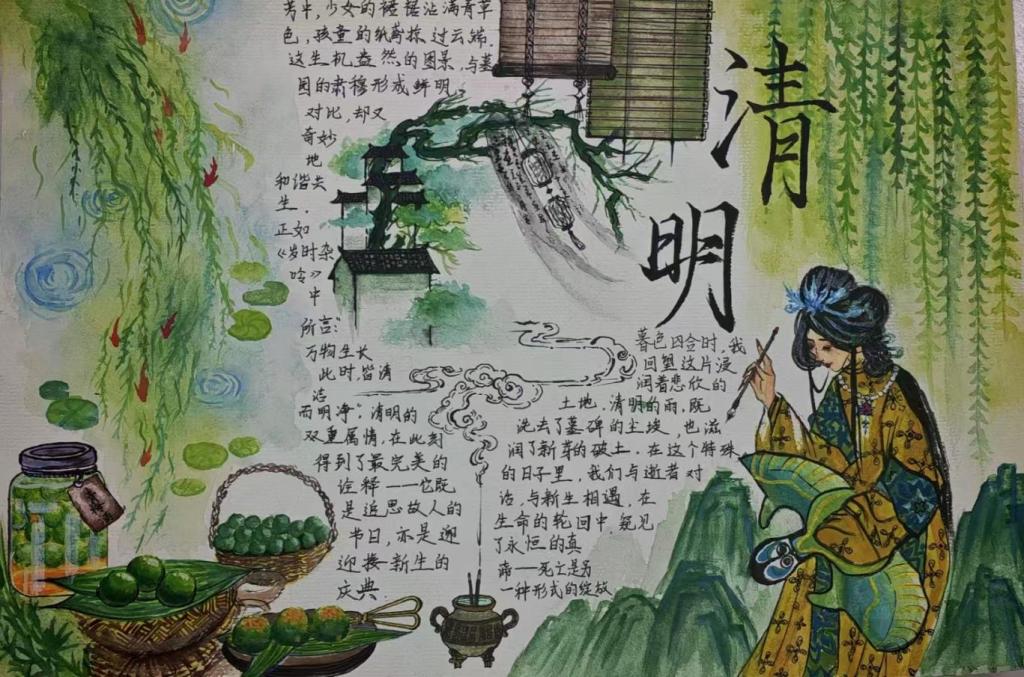 清
明
芳中,少女的裙裾沾满青草
色,孩童的纸鸢掠过云端.
这生机盎然的图景,与墓
园的肃穆形成鲜明
对比,却又
奇妙
地
和谐共
生.
正如
《岁时杂
咏》中
所言:
万物生长
此时,皆清
洁
而明净:清明的
双重属情,在此刻
得到了最完美的
诠释——它既
是追思故人的
节日,亦是迎
迎接新生的
庆典.
暮色四合时,我
回望这片浸
润着悲欣的
土地.清明的雨,既
洗去了墓碑的尘埃,也滋
润了新芽的破土.在这个特殊
的日子里,我们与逝者对
话,与新生相遇.在
生命的轮回中,窥见
了永恒的真
谛——死亡是另
一种形式的绽放